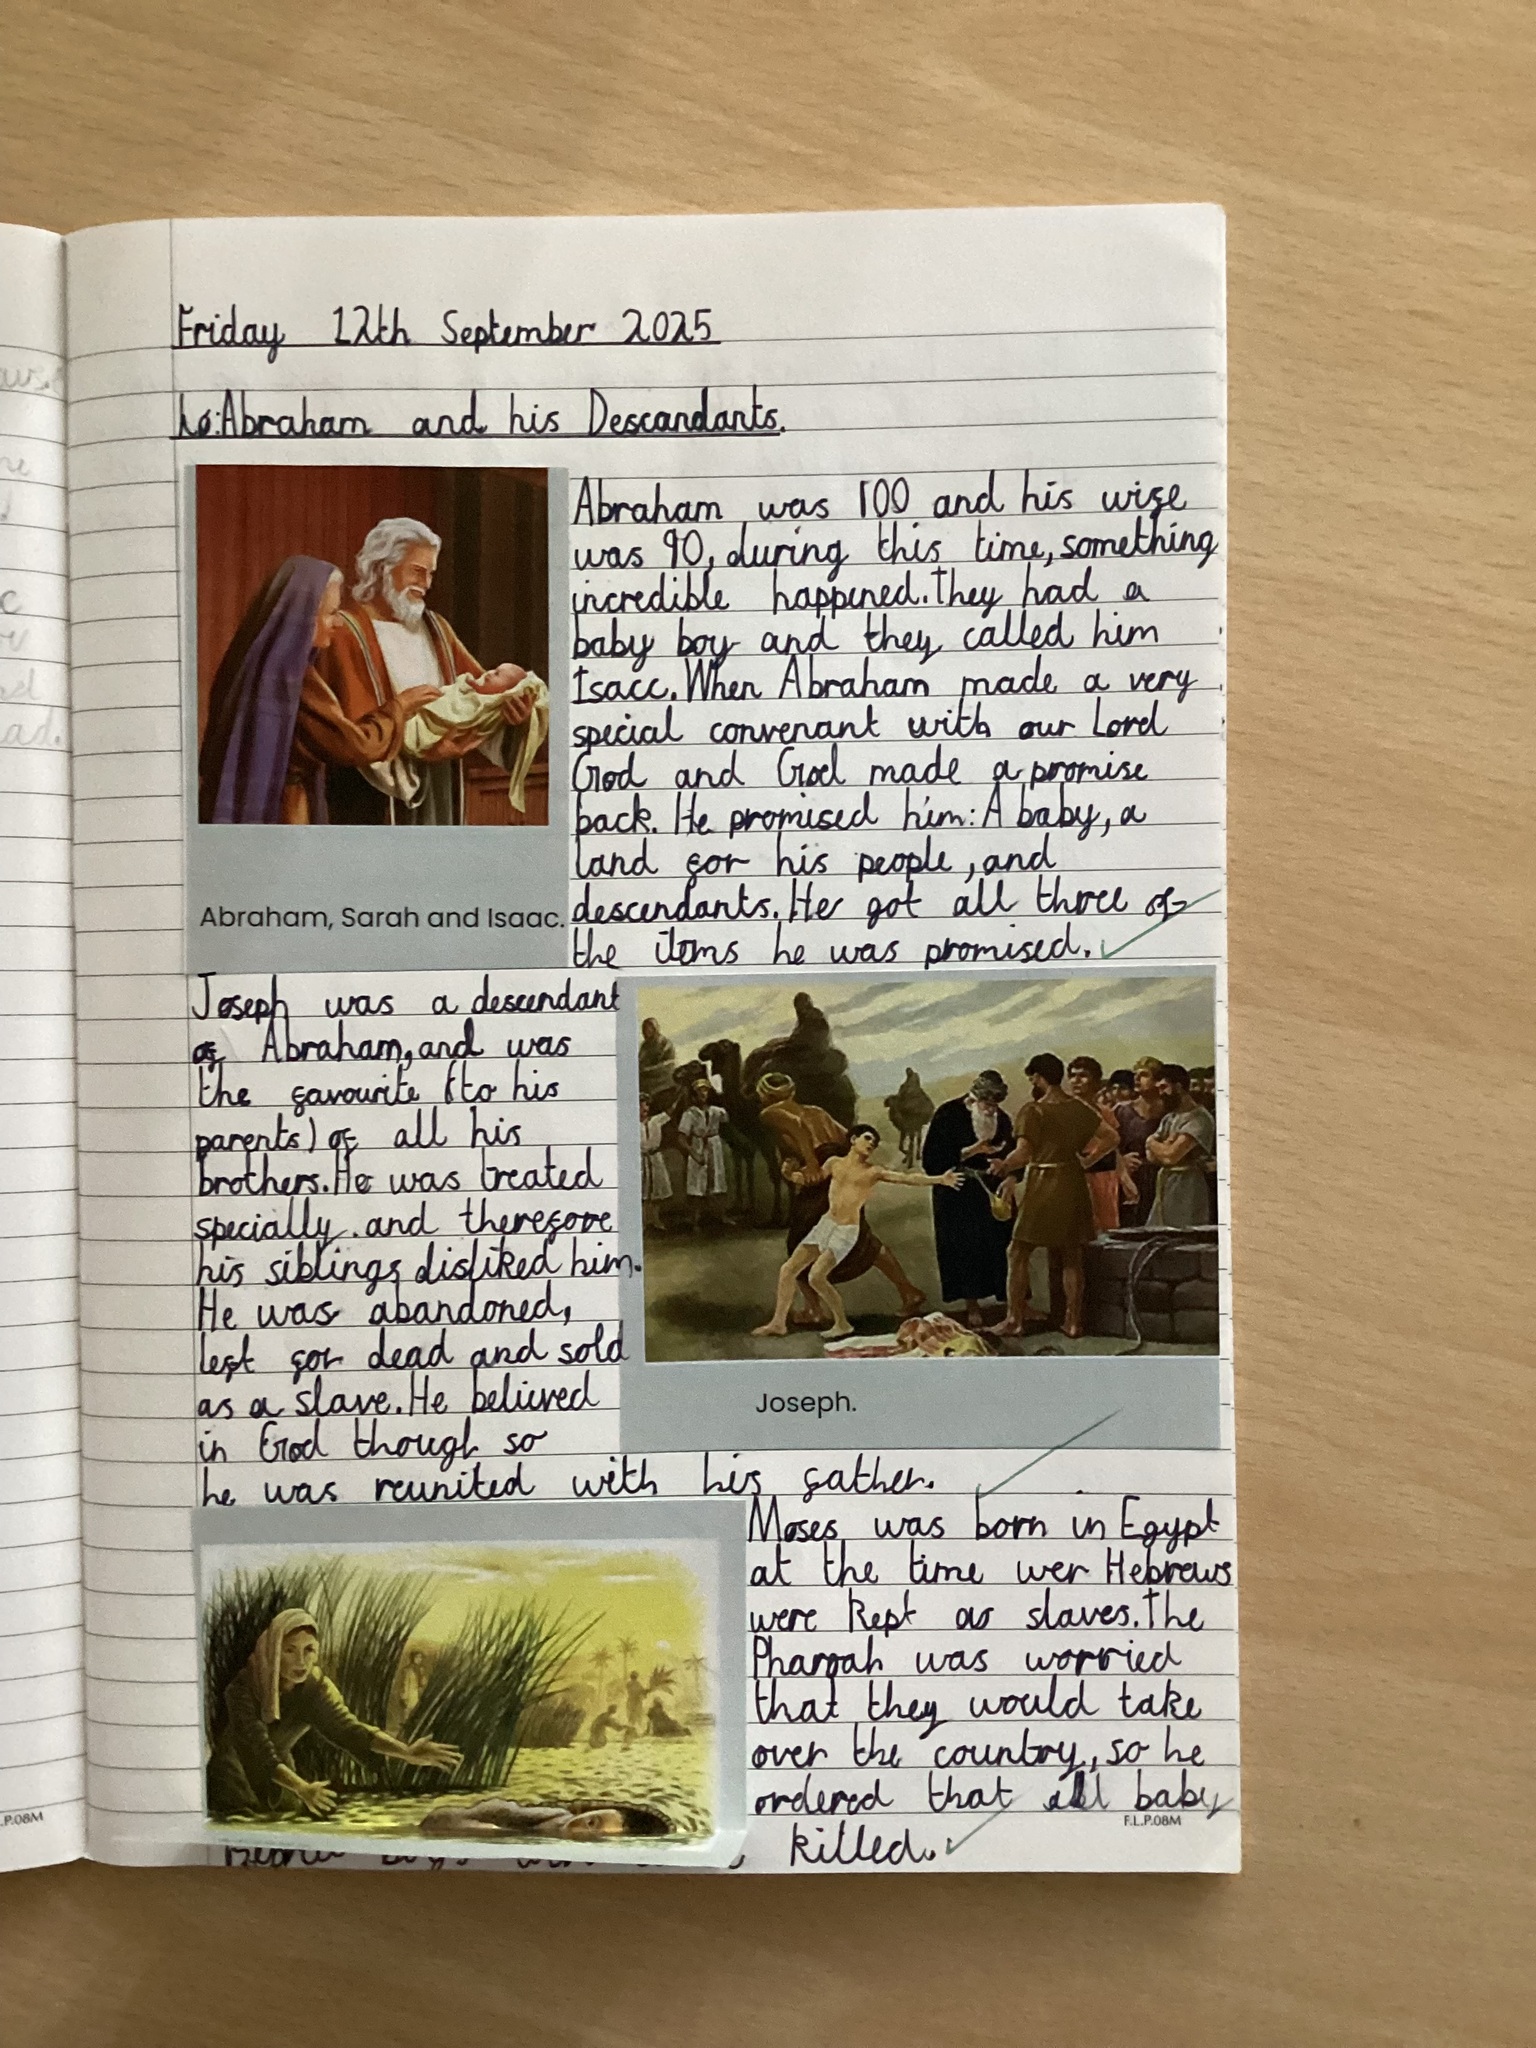 Friday 12th September 2025
Lo: Abraham and his Descandants.
Abraham was 100 and his wife
was 90, during this time, something
incredible happened. They had a
baby boy and they called him
Isacc. When Abraham made a very
special convenant with our Lord
God and God made a promise
back. He promised him: A baby, a
land for his people, and
descendants. He got all three of
the items he was promised.
Abraham, Sarah and Isaac.
Joseph was a descendant
of Abraham, and was
the favourite (to his
parents) of all his
brothers. He was treated
specially. and therefore
his siblings disliked him.
He was abandoned,
left for dead and sold
as a slave. He believed
in God though so
he was reunited with his father.
Joseph.
Moses was born in Egypt
at the time wer Hebrews
were kept as slaves. The
Pharoah was worried
that they would take
over the country, so he
ordered that all baby
boys killed.
F.L.P.08M
.P.08M